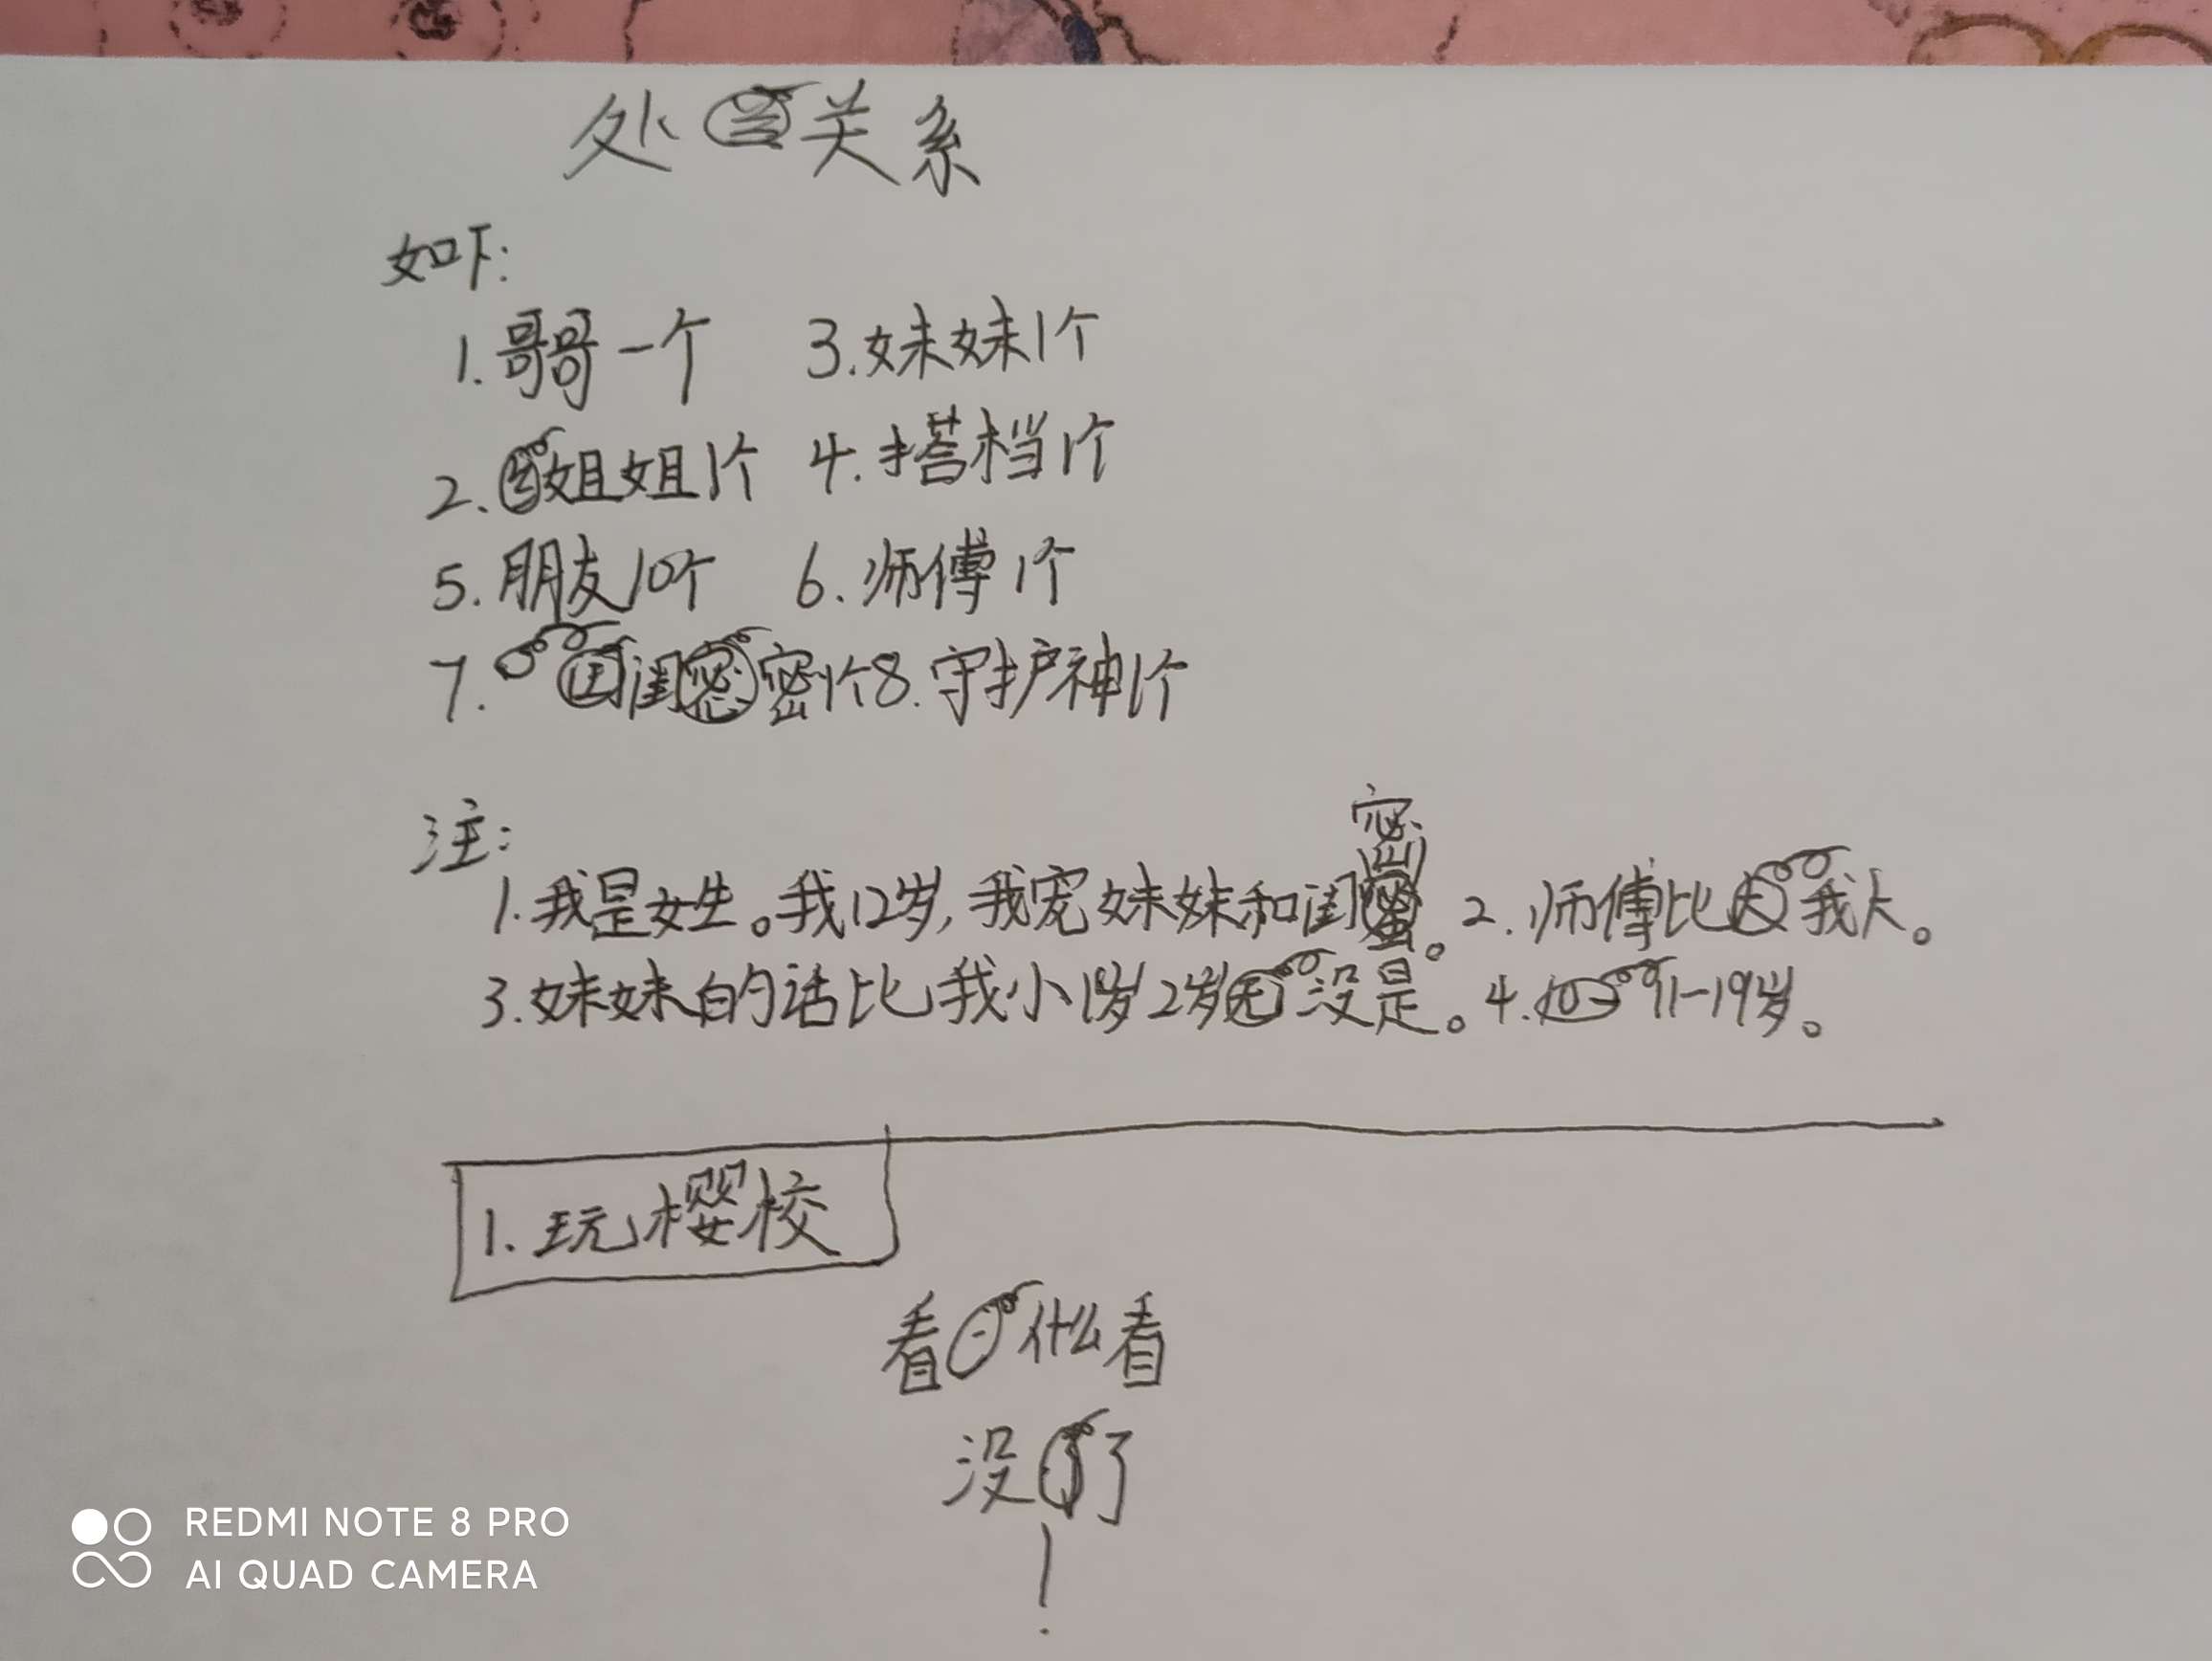 处关系
如下:
1.哥哥一个 3.妹妹1个
2.姐姐1个 4.搭档1个
5.朋友10个 6.师傅1个
7.闺密1个 8.守护神1个
注:
1.我是女生。我12岁,我宠妹妹和闺密。2.师傅比我大。
3.妹妹的话比我小1岁2岁没是。4.11-19岁。
1.玩樱校
看什么看
没了
!
REDMI NOTE 8 PRO
AI QUAD CAMERA